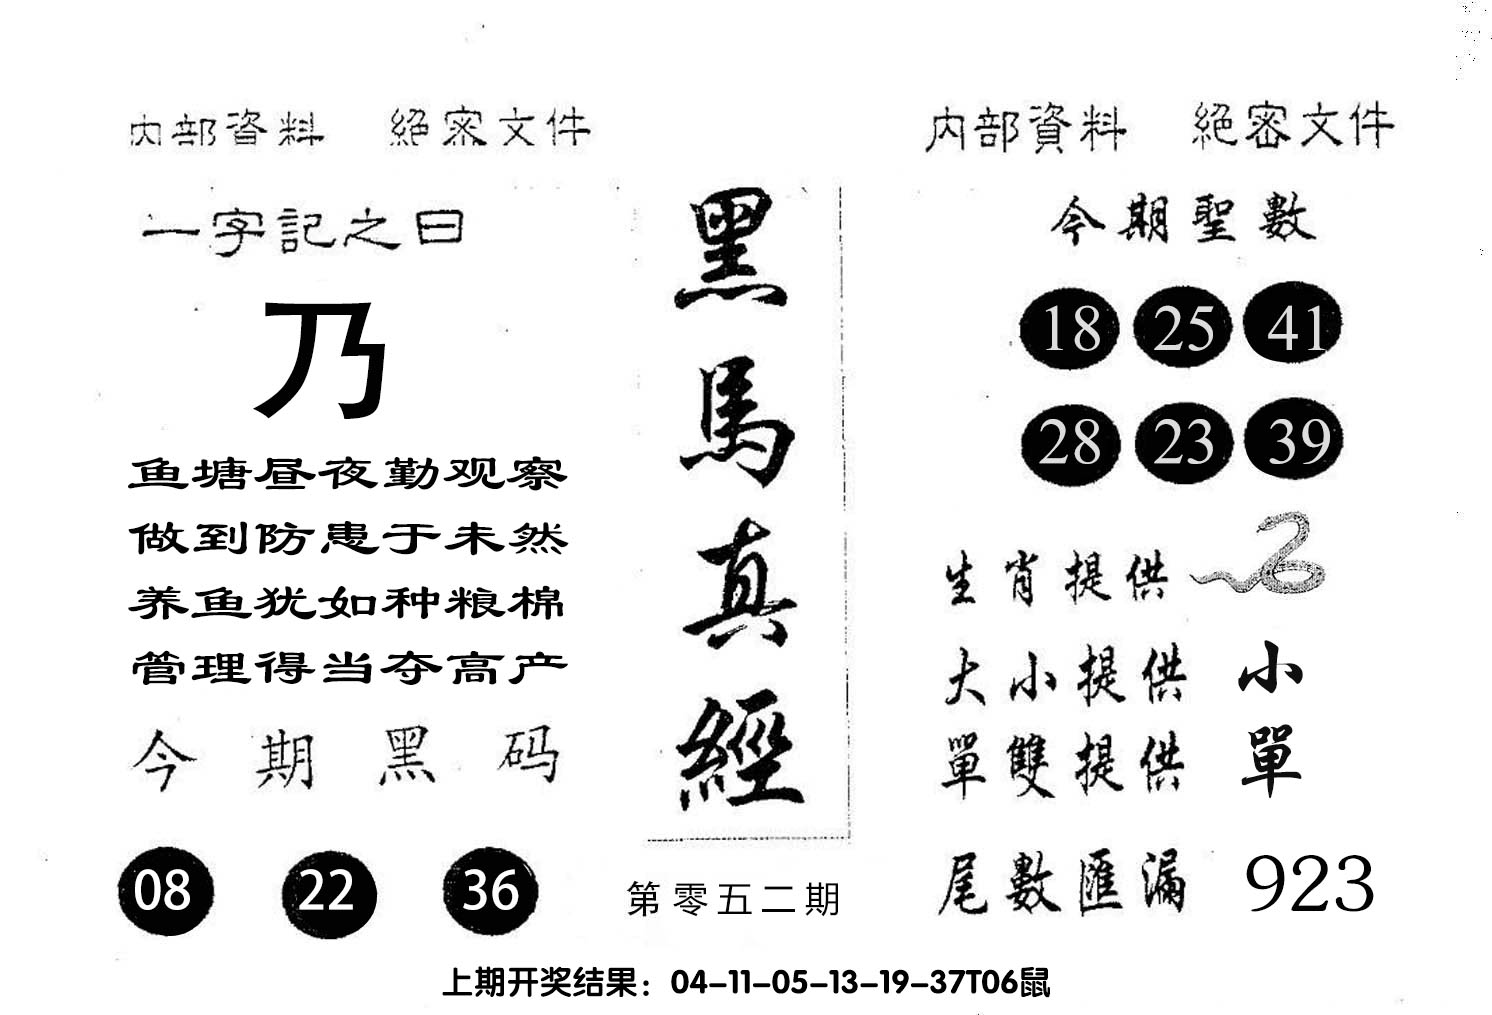 内部資料 絕密文件
一字記之曰
乃
鱼塘昼夜勤观察
做到防患于未然
养鱼犹如种粮棉
管理得当夺高产
今期黑码
08 22 36
黑馬真經
第零五二期
内部資料 絕密文件
今期聖數
18 25 41
28 23 39
生肖提供
大小提供 小
單雙提供 單
尾數匯漏 923
上期开奖结果：04-11-05-13-19-37T06鼠